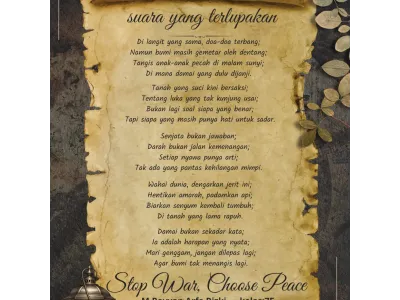 suara yang terlupakan
Di langit yang sama, doa-doa terbang;
Namun bumi masih gemetar oleh dentang;
Tangis anak-anak pecah di malam sunyi;
Di mana damai yang dulu dijanji.
Tanah yang suci kini bersaksi;
Tentang luka yang tak kunjung usai;
Bukan lagi soal siapa yang benar;
Tapi siapa yang masih punya hati untuk sadar.
Senjata bukan jawaban;
Darah bukan jalan kemenangan;
Setiap nyawa punya arti;
Tak ada yang pantas kehilangan mimpi.
Wahai dunia, dengarkan jerit ini;
Hentikan amarah, padamkan api;
Biarkan senyum kembali tumbuh;
Di tanah yang lama rapuh.
Damai bukan sekadar kata;
Ia adalah harapan yang nyata;
Mari genggam, jangan dilepas lagi;
Agar bumi tak menangis lagi.
Stop War, Choose Peace